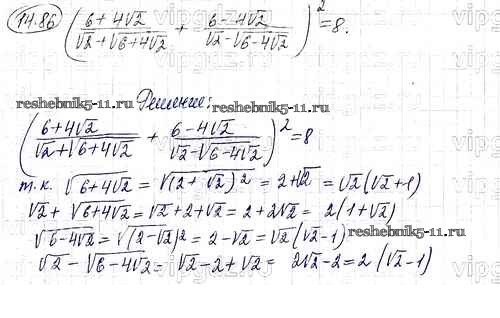 14.86 ( (6 + 4√2) / (√2 + √(6+4√2)) + (6 - 4√2) / (√2 - √(6-4√2)) )² = 8.
reshebnik5-11.ru Решение: reshebnik5-11.ru
( (6+4√2) / (√2 + √(6+4√2)) + (6-4√2) / (√2 - √(6-4√2)) )² = 8
т.к. √(6+4√2) = √((2+√2)²) = 2+√2 = √2(√2+1)
√2 + √(6+4√2) = √2+2+√2 = 2+2√2 = 2(1+√2)
√(6-4√2) = √((2-√2)²) = 2-√2 = √2(√2-1)
reshebnik5-11.ru
√2 - √(6-4√2) = √2-2+√2 = 2√2-2 = 2(√2-1)